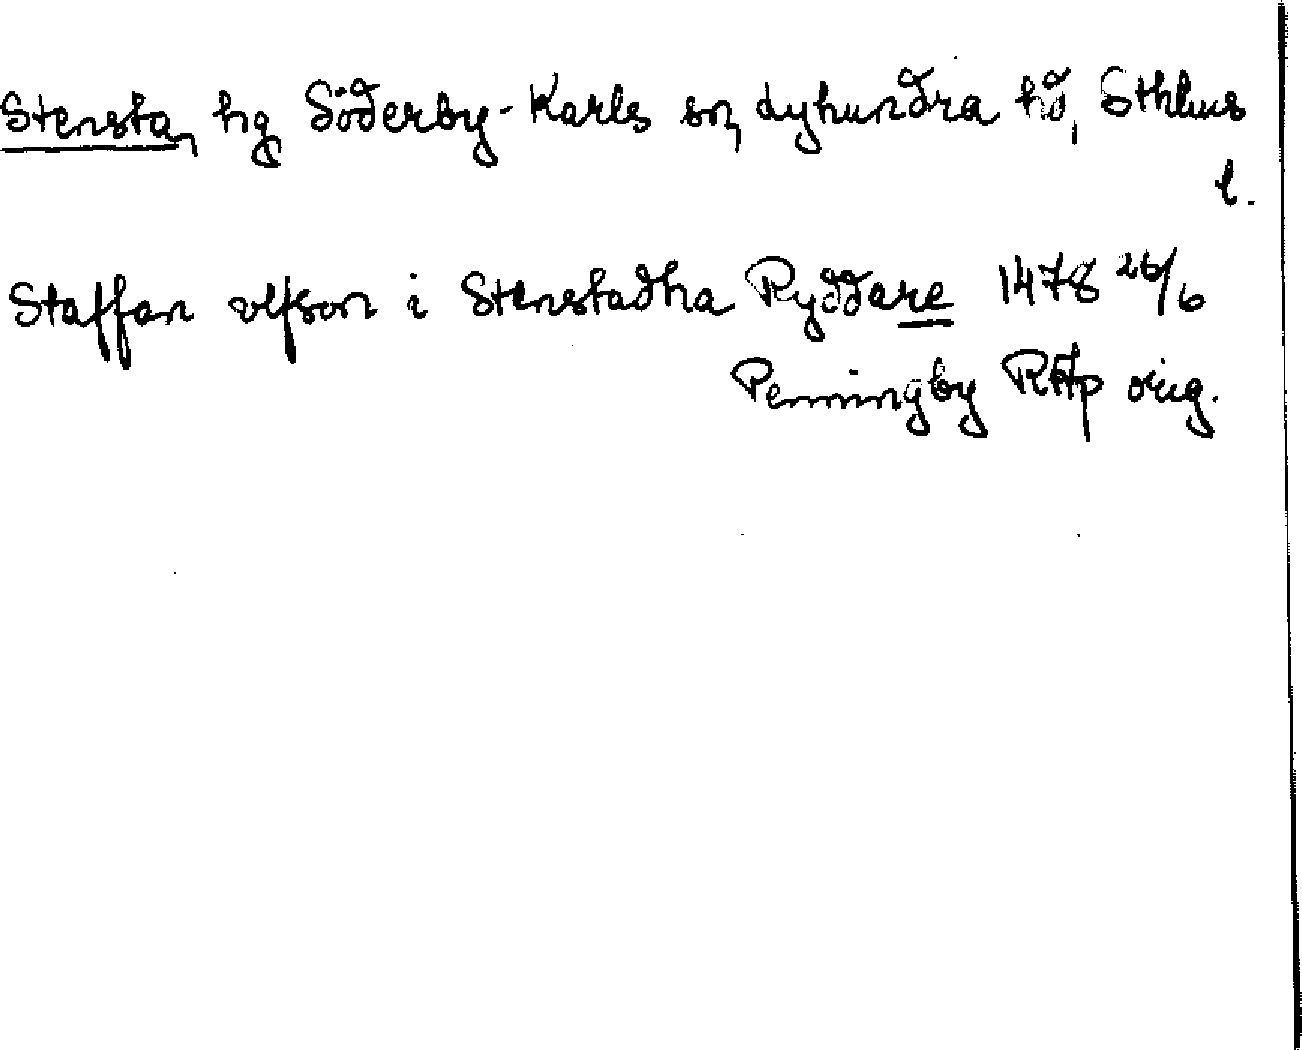 Stensta, hg Söderby-Karls sn, Lyhundra hd, Sthlms
l.
Staffan olfson i Stenstadha Ryddare 1478 26/6
Penningby RAp orig.